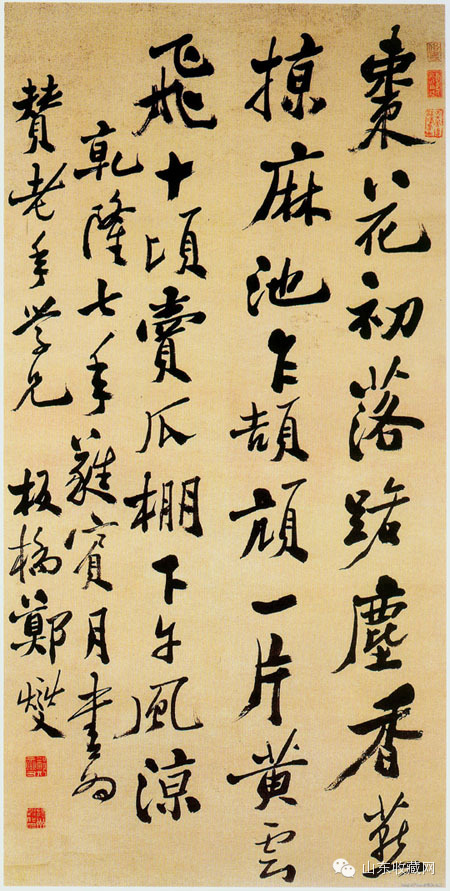 棗花初落路塵香燕
掠麻池乍頡頏一片黃雲
飛十頃賣瓜棚下午風涼
乾隆七年蕤賓月書為
贊老年學兄 板橋鄭燮
山东收藏网